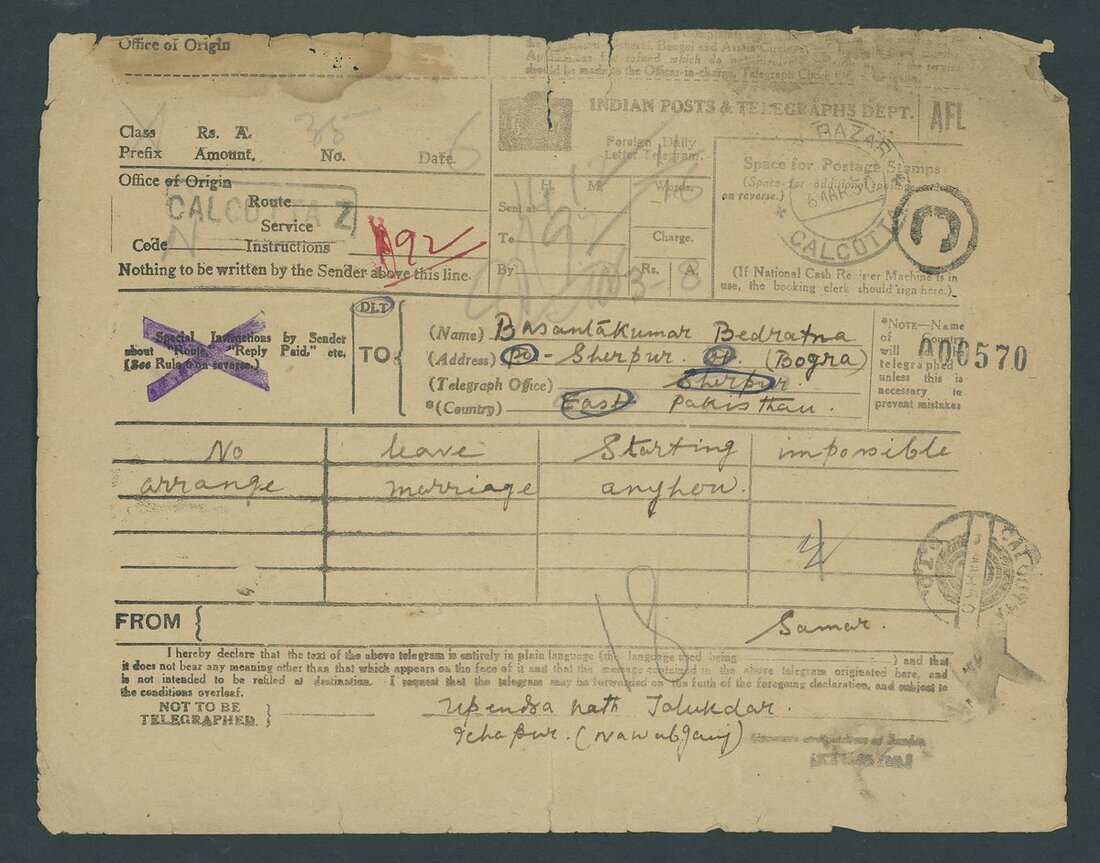 Office of Origin
INDIAN POSTS & TELEGRAPHS DEPT.
AFL
Class Rs. A.
Prefix Amount. No. Date.
35
6
Foreign Daily
Letter Telegram.
BAZAR
6 MAR 50
CALCUTTA
Space for Postage Stamps
(Space for additional
on reverse.)
C
Office of Origin
CALCUTTA
Route
Service
Code Instructions
N
192
H. M.
Words.
Sent at
To
Charge.
By
Rs. A.
3-8
Nothing to be written by the Sender above this line.
(If National Cash Register Machine is in
use, the booking clerk should sign here.)
Special Instructions by Sender
about "Route, "Reply Paid," etc.
(See Rule 6 on reverse.)
DLT
TO
(Name) Basantakumar Bedratna
(Address) Po - Sherpur. (Bogra)
(Telegraph Office) Sherpur.
*(Country) East Pakisthan.
*NOTE—Name
of Country
will not be
telegraphed
unless this is
necessary to
prevent mistakes
000570
No leave Starting impossible
arrange marriage anyhow.
CALCUTTA
18
FROM
Samar.
I hereby declare that the text of the above telegram is entirely in plain language (the language used being ) and that
it does not bear any meaning other than that which appears on the face of it and that the message contained in the above telegram originated here, and
is not intended to be retled at destination. I request that the telegram may be forwarded on the faith of the foregoing declaration, and subject to
the conditions overleaf.
NOT TO BE
TELEGRAPHED
Upendra nath Talukdar.
Ichapur. (Nawabganj)